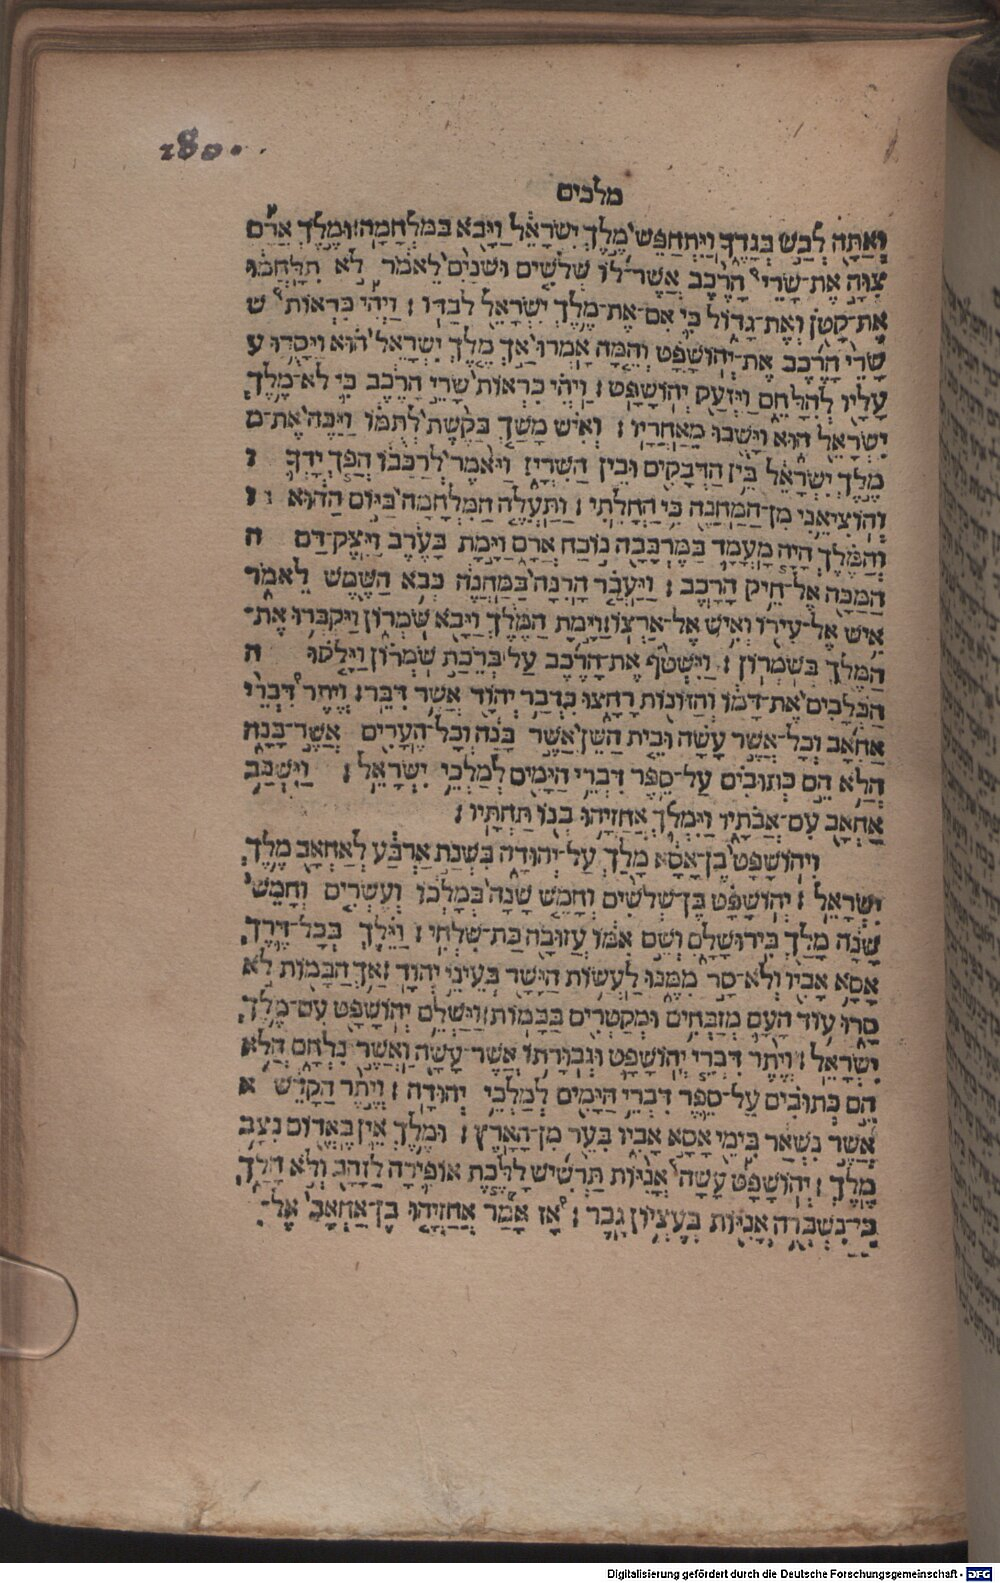 180.
מלכים
וְאַתָּה לְבַשׁ בְּגָדֶךָ וַיִּתְחַפֵּשׂ מֶלֶךְ יִשְׂרָאֵל וַיָּבֹא בַּמִּלְחָמָה׃ וּמֶלֶךְ אֲרָם
צִוָּה אֶת־שָׂרֵי הָרֶכֶב אֲשֶׁר־לוֹ שְׁלֹשִׁים וּשְׁנַיִם לֵאמֹר לֹא תִּלָּחֲמוּ
אֶת־קָטֹן וְאֶת־גָּדוֹל כִּי אִם־אֶת־מֶלֶךְ יִשְׂרָאֵל לְבַדּוֹ׃ וַיְהִי כִּרְאוֹת ש
שָׂרֵי הָרֶכֶב אֶת־יְהוֹשָׁפָט וְהֵמָּה אָמְרוּ אַךְ מֶלֶךְ יִשְׂרָאֵל הוּא וַיָּסֻרוּ ע
עָלָיו לְהִלָּחֵם וַיִּזְעַק יְהוֹשָׁפָט׃ וַיְהִי כִּרְאוֹת שָׂרֵי הָרֶכֶב כִּי לֹא־מֶלֶךְ
יִשְׂרָאֵל הוּא וַיָּשֻׁבוּ מֵאַחֲרָיו׃ וְאִישׁ מָשַׁךְ בַּקֶּשֶׁת לְתֻמּוֹ וַיַּכֶּה אֶת־מ
מֶלֶךְ יִשְׂרָאֵל בֵּין הַדְּבָקִים וּבֵין הַשִּׁרְיָן וַיֹּאמֶר לְרַכָּבוֹ הֲפֹךְ יָדְךָ ו
וְהוֹצִיאֵנִי מִן־הַמַּחֲנֶה כִּי הָחֳלֵתִי׃ וַתַּעֲלֶה הַמִּלְחָמָה בַּיּוֹם הַהוּא ו
וְהַמֶּלֶךְ הָיָה מָעֳמָד בַּמֶּרְכָּבָה נוֹכַח אֲרָם וַיָּמָת בָּעֶרֶב וַיִּצֶק־דַּם ה
הַמַּכָּה אֶל־חֵיק הָרָכֶב׃ וַיַּעֲבֹר הָרִנָּה בַּמַּחֲנֶה כְּבֹא הַשֶּׁמֶשׁ לֵאמֹר
אִישׁ אֶל־עִירוֹ וְאִישׁ אֶל־אַרְצוֹ׃ וַיָּמָת הַמֶּלֶךְ וַיָּבֹא שֹׁמְרוֹן וַיִּקְבְּרוּ אֶת־
הַמֶּלֶךְ בְּשֹׁמְרוֹן׃ וַיִּשְׁטֹף אֶת־הָרֶכֶב עַל בְּרֵכַת שֹׁמְרוֹן וַיָּלֹקּוּ ה
הַכְּלָבִים אֶת־דָּמוֹ וְהַזּוֹנוֹת רָחָצוּ כִּדְבַר יְהוָֹה אֲשֶׁר דִּבֵּר׃ וְיֶתֶר דִּבְרֵי
אַחְאָב וְכָל־אֲשֶׁר עָשָׂה וּבֵית הַשֵּׁן אֲשֶׁר בָּנָה וְכָל־הֶעָרִים אֲשֶׁר־בָּנָה
הֲלֹא הֵם כְּתוּבִים עַל־סֵפֶר דִּבְרֵי הַיָּמִים לְמַלְכֵי יִשְׂרָאֵל׃ וַיִּשְׁכַּב
אַחְאָב עִם־אֲבֹתָיו וַיִּמְלֹךְ אֲחַזְיָהוּ בְנוֹ תַּחְתָּיו׃
וִיהוֹשָׁפָט בֶּן־אָסָא מָלַךְ עַל־יְהוּדָה בִּשְׁנַת אַרְבַּע לְאַחְאָב מֶלֶךְ
יִשְׂרָאֵל׃ יְהוֹשָׁפָט בֶּן־שְׁלֹשִׁים וְחָמֵשׁ שָׁנָה בְּמָלְכוֹ וְעֶשְׂרִים וְחָמֵשׁ
שָׁנָה מָלַךְ בִּירוּשָׁלָ͏ִם וְשֵׁם אִמּוֹ עֲזוּבָה בַּת־שִׁלְחִי׃ וַיֵּלֶךְ בְּכָל־דֶּרֶךְ
אָסָא אָבִיו וְלֹא־סָר מִמֶּנּוּ לַעֲשׂוֹת הַיָּשָׁר בְּעֵינֵי יְהוָֹה׃ אַךְ הַבָּמוֹת לֹא
סָרוּ עוֹד הָעָם מְזַבְּחִים וּמְקַטְּרִים בַּבָּמוֹת׃ וַיַּשְׁלֵם יְהוֹשָׁפָט עִם־מֶלֶךְ
יִשְׂרָאֵל׃ וְיֶתֶר דִּבְרֵי יְהוֹשָׁפָט וּגְבוּרָתוֹ אֲשֶׁר־עָשָׂה וַאֲשֶׁר נִלְחָם הֲלֹא
הֵם כְּתוּבִים עַל־סֵפֶר דִּבְרֵי הַיָּמִים לְמַלְכֵי יְהוּדָה׃ וְיֶתֶר הַקָּדֵשׁ א
אֲשֶׁר נִשְׁאַר בִּימֵי אָסָא אָבִיו בִּעֵר מִן־הָאָרֶץ׃ וּמֶלֶךְ אֵין בֶּאֱדוֹם נִצָּב
מֶלֶךְ׃ יְהוֹשָׁפָט עָשָׂה אֳנִיּוֹת תַּרְשִׁישׁ לָלֶכֶת אוֹפִירָה לַזָּהָב וְלֹא הָלָךְ
כִּי־נִשְׁבְּרָה אֳנִיּוֹת בְּעֶצְיוֹן גָּבֶר׃ אָז אָמַר אֲחַזְיָהוּ בֶן־אַחְאָב אֶל־
Digitalisierung gefördert durch die Deutsche Forschungsgemeinschaft - DFG